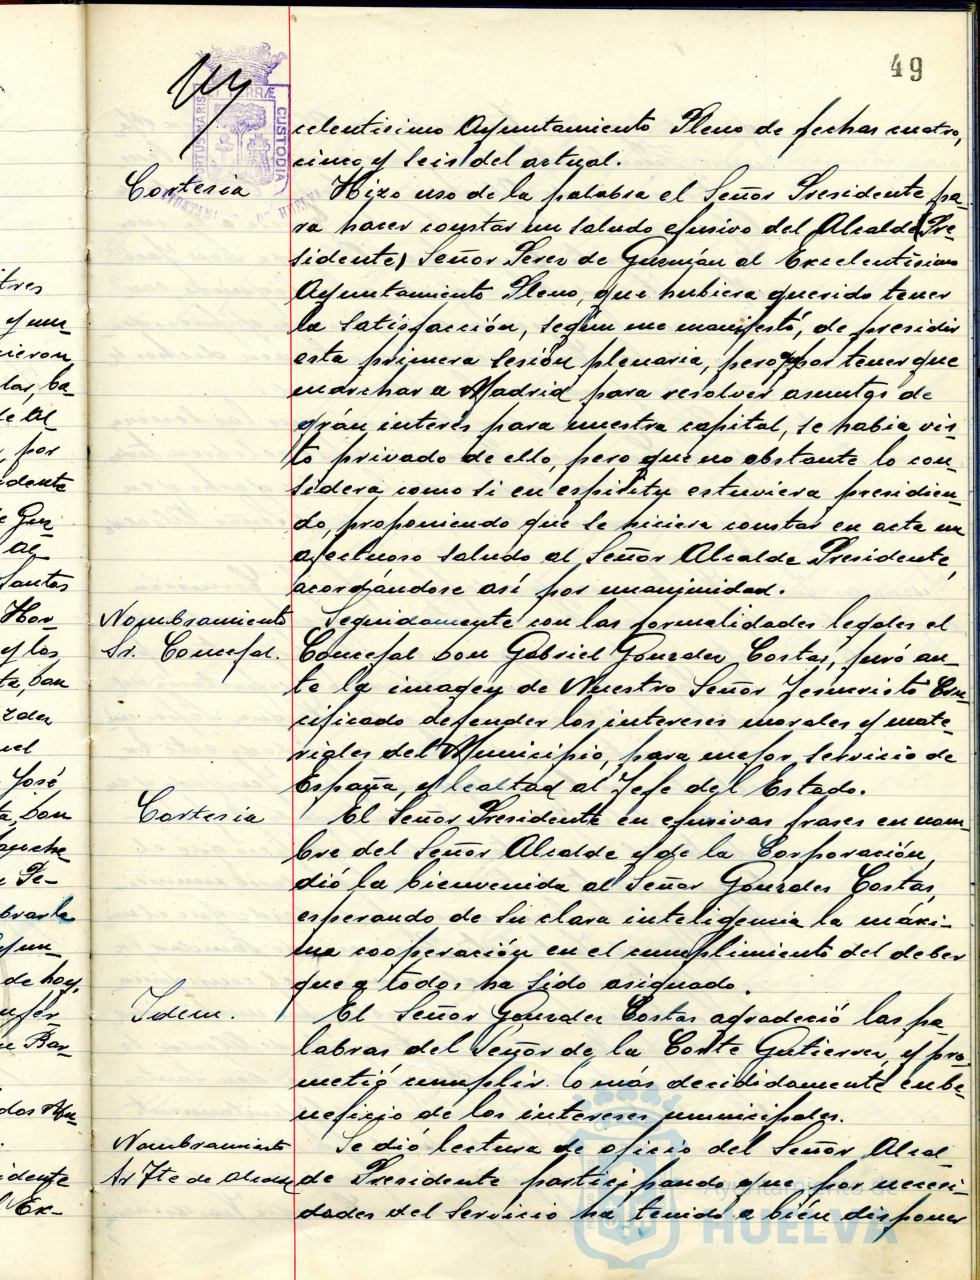 49
PORTUS MARIS ET TERRÆ CUSTODIA
celentisimo Ayuntamiento Pleno de fechas cuatro,
cinco y seis del actual.
Cortesia
Hizo uso de la palabra el Señor Presidente pa-
ra hacer constar un saludo efusivo del Alcalde (Pre-
sidente) Señor Perez de Guzmán al Excelentisimo
Ayuntamiento Pleno, que hubiera querido tener
la satisfacción, según me manifestó, de presidir
esta primera sesión plenaria, pero por tener que
marchar a Madrid para resolver asuntos de
grán interés para nuestra capital, se habia vis-
to privado de ello, pero que no obstante lo con-
sidera como si en espiritu estuviera presidien-
do, proponiendo que se hiciera constar en acta un
afectuoso saludo al Señor Alcalde Presidente,
acordándose así por unanimidad.
Nombramiento
Sr. Concejal.
Seguidamente con las formalidades legales el
Concejal Don Gabriel Gonzalez Costas, juró an-
te la imagen de Nuestro Señor Jesucristo Cru-
cificado defender los intereses morales y mate-
riales del Municipio, para mejor servicio de
España, y lealtad al Jefe del Estado.
Cortesia
El Señor Presidente en efusivas frases en nom-
bre del Señor Alcalde y de la Corporación,
dió la bienvenida al Señor Gonzalez Costas,
esperando de su clara inteligencia la máxi-
ma cooperación en el cumplimiento del deber
que a todos ha sido asignado.
Idem.
El Señor Gonzalez Costas agradeció las pa-
labras del Señor de la Corte Gutierrez, y pro-
metió cumplir lo más decididamente en be-
neficio de los intereses municipales.
Nombramiento
Sr Tte de Alcalde
Se dió lectura de oficio del Señor Alcal-
de Presidente participando que por necesi-
dades del servicio ha tenido a bien disponer
Ayuntamiento de
HUELVA
tres
y un-
nieron
lar, ba-
de al
, por
idente
Guz-
al
Santos
Hor-
y los
ta, Don
José
ta, Don
Pe-
brarla
de hoy,
Bar-
idente
Ex-